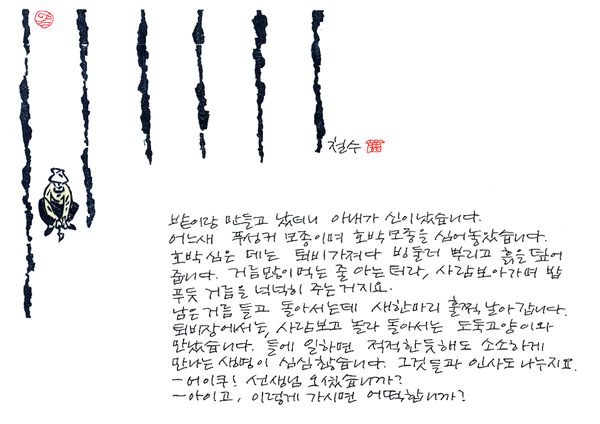 철수
밭이랑 만들고 났더니 아내가 신이났습니다.
어느새 푸성커 모종이며 호박모종을 심어놓았습니다.
호박 심은 데는 퇴비가져다 빙둘러 뿌리고 흙을 덮어
줍니다. 거름많이먹는 줄 아는터라, 사람보아가며 밥
푸듯 거름을 넉넉히 주는거지요.
남은거름 들고 돌아서는데 새한마리 훌쩍 날아갑니다.
퇴비장에서는, 사람보고 놀라 돌아서는 도둑고양이와
만났습니다. 들에 일하면 적적한듯해도 소소하게
만나는 생명이 심심찮습니다. 그것들과 인사도 나누지요.
-어이쿠! 선생님 오셨습니까?
-아이고, 이렇게 가시면 어떡합니까?